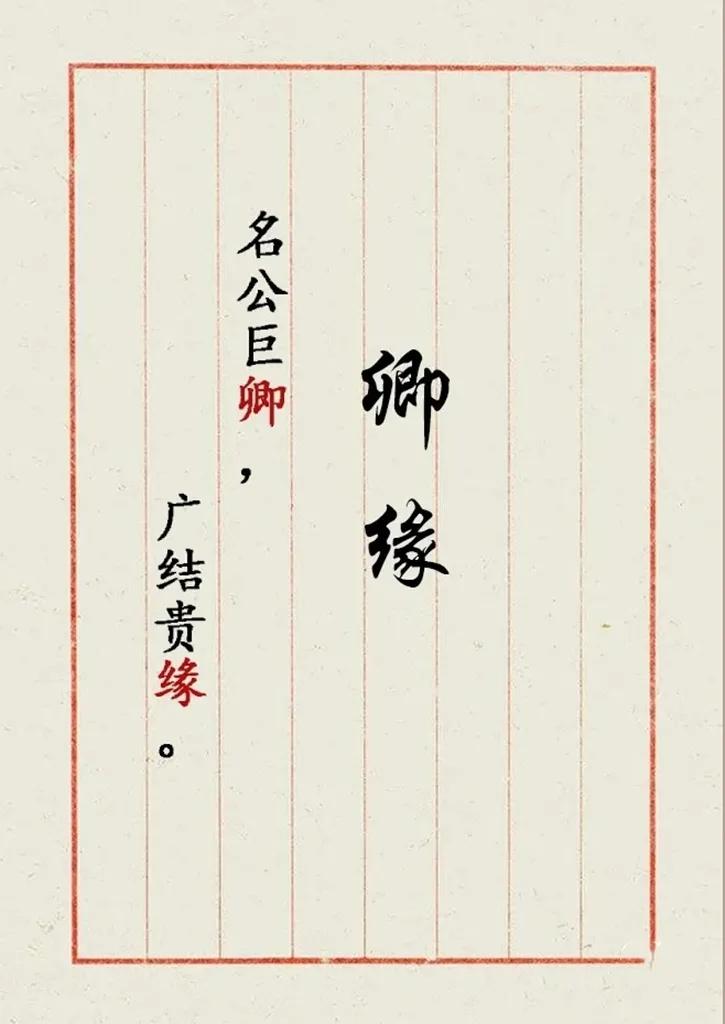 卿缘
名公巨卿，
广结贵缘。